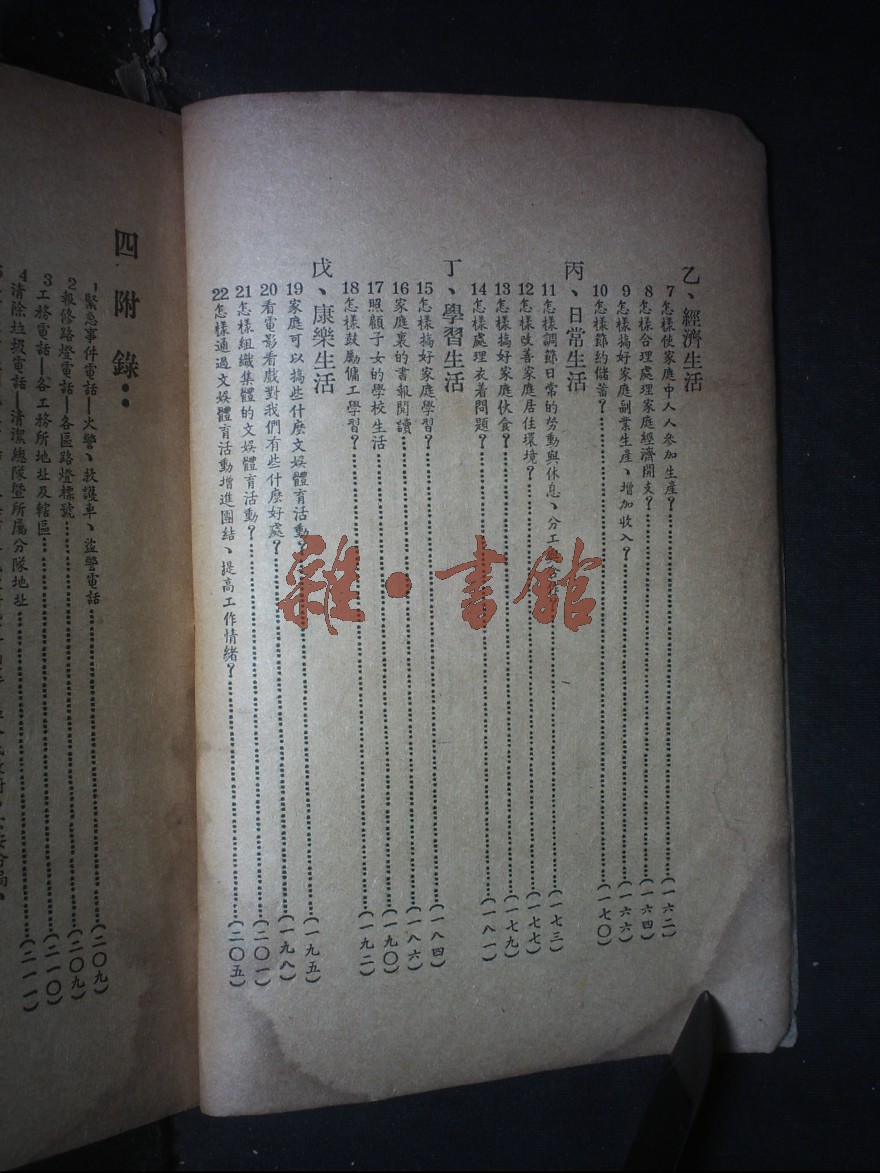 乙、經濟生活
7怎樣使家庭中人人參加生產?……(一六二)
8怎樣合理處理家庭經濟開支?……(一六四)
9怎樣搞好家庭副業生產、增加收入?……(一六六)
10怎樣節約儲蓄?……(一七〇)
丙、日常生活
11怎樣調節日常的勞動與休息、分工……(一七三)
12怎樣改善家庭居住環境?……(一七七)
13怎樣搞好家庭伙食?……(一七九)
14怎樣處理衣着問題?……(一八一)
丁、學習生活
15怎樣搞好家庭學習?……(一八四)
16家庭裏的書報閱讀……(一八六)
17照顧子女的學校生活……(一九〇)
18怎樣鼓勵傭工學習?……(一九二)
戊、康樂生活
19家庭可以搞些什麼文娛體育活動?……(一九五)
20看電影看戲對我們有些什麼好處?……(一九八)
21怎樣組織集體的文娛體育活動?……(二〇一)
22怎樣通過文娛體育活動增進團結、提高工作情緒?……(二〇五)
四 附錄:
1緊急事件電話—火警、救護車、盜警電話……(二〇九)
2報修路燈電話—各區路燈標號……(二〇九)
3工務電話—各工務所地址及轄區……(二一〇)
4清除垃圾電話—清潔總隊暨所屬分隊地址……(二一一)
雜·書館